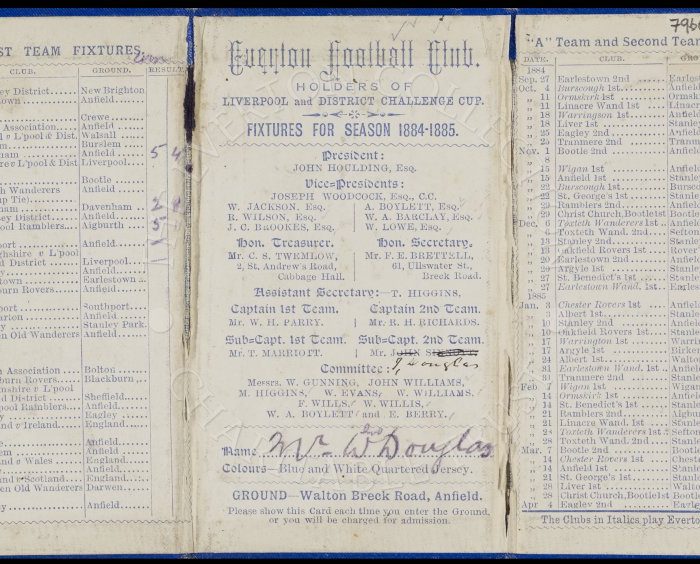 ST TEAM FIXTURES.
CLUB. GROUND. RESULT
ey District New Brighton
town Anfield
Crewe
Association Anfield
d v L'pool & Dist. Walsall
am Burslem
ham Anfield 5 4
re v L'pool & Dist Liverpool
Bootle
h Wanderers Anfield
p Tie)
nham Davenham 2
ey District Anfield 5
pool Ramblers Aigburth
port Anfield 1
nghshire v L'pool
d District Liverpool
Anfield
town Earlestown
burn Rovers Anfield
port Southport
arton Anfield
Stanley Park.
en Old Wanderers Anfield
Association Bolton
burn Rovers Blackburn
nshire v L'pool
d District Sheffield
pool Ramblers Anfield
ey Eagley
and v Ireland England
Anfield
Anfield
nd v Wales England
Anfield
and v Scotland England
en Old Wanderers Darwen
Anfield
Everton Football Club.
HOLDERS OF
LIVERPOOL and DISTRICT CHALLENGE CUP.
FIXTURES FOR SEASON 1884-1885.
President:
JOHN HOULDING, ESQ.
Vice-Presidents:
JOSEPH WOODCOCK, ESQ., C.C.
W. JACKSON, ESQ. A. BOYLETT, ESQ.
R. WILSON, ESQ. W. A. BARCLAY, ESQ.
J. C. BROOKES, ESQ. W. LOWE, ESQ.
Hon. Treasurer. Hon. Secretary.
Mr. C. S. TWEMLOW, Mr. F. E. BRETTELL,
2, St. Andrew's Road, 61, Ullswater St.,
Cabbage Hall. Breck Road.
Assistant Secretary:—T. HIGGINS,
Captain 1st Team. Captain 2nd Team.
Mr. W. H. PARRY. Mr. R. H. RICHARDS.
Sub-Capt. 1st Team. Sub-Capt. 2nd Team.
Mr. T. MARRIOTT. Mr. JOHN
Committee: J, Douglas
Messrs. W. GUNNING, JOHN WILLIAMS,
M. HIGGINS, W. EVANS, W. WILLIAMS.
F. WILLS, W. WILLIS,
W. A. BOYLETT and E. BERRY.
Name Mr Douglas
Colours—Blue and White Quartered Jersey.
GROUND—Walton Breck Road, Anfield.
Please show this Card each time you enter the Ground,
or you will be charged for admission.
796
"A" Team and Second Tea
DATE. CLUB.
1884
Sep. 27 Earlestown 2nd Earles
Oct. 4 Burscough 1st Anfiel
11 Ormskirk 1st Ormsk
11 Linacre Wand 1st Linacr
18 Warringson 1st Anfiel
18 Liver 1st Stanle
25 Eagley 2nd Anfiel
25 Tranmere 2nd Stanle
Nov. 1 Bootle 2nd Anfiel
8
15 Wigan 1st Anfiel
15 Anfield 1st Stanle
22 Burscough 1st Bursco
22 St. George's 1st Stanle
29 Ramblers 2nd Anfiel
29 Christ Church, Bootle 1st Bootle
Dec. 6 Toxteth Wanderers 1st Anfiel
6 Toxteth Wand. 2nd Sefton
13 Stanley 2nd Stanle
13 Oakfield Rovers 1st Stanle
20 Earlestown 2nd Anfiel
20 Argyle 1st Stanle
27 St. Benedict's 1st Stanle
27 Earlestown Wand. 1st Earles
1885
Jan. 3 Chester Rovers 1st Anfiel
3 Albert 1st Stanle
10 Stanley 2nd Anfiel
10 Oakfield Rovers 1st Stanle
17 Warrington 1st Warrin
17 Argyle 1st Birken
24 Albert 1st Walton
31 Earlestown Wand. 1st Anfiel
31 Tranmere 2nd Stanle
Feb 7 Wigan 1st Wigan
14 Ormskirk 1st Anfiel
14 St. Benedict's 1st Stanle
21 Ramblers 2nd Aigbur
21 Linacre Wand. 1st Stanle
28 Toxteth Wanderers 1st Sefton
28 Toxteth Wand. 2nd Stanle
Mar. 7 Bootle 2nd Anfiel
14 Chester Rovers 1st Cheste
14 Anfield 1st Stanle
21 St. George's 1st Stanle
28 Liver 1st Walton
28 Christ Church, Bootle 1st Bootle
Apr 4 Eagley 2nd Eagley
The Clubs in Italics play Everto